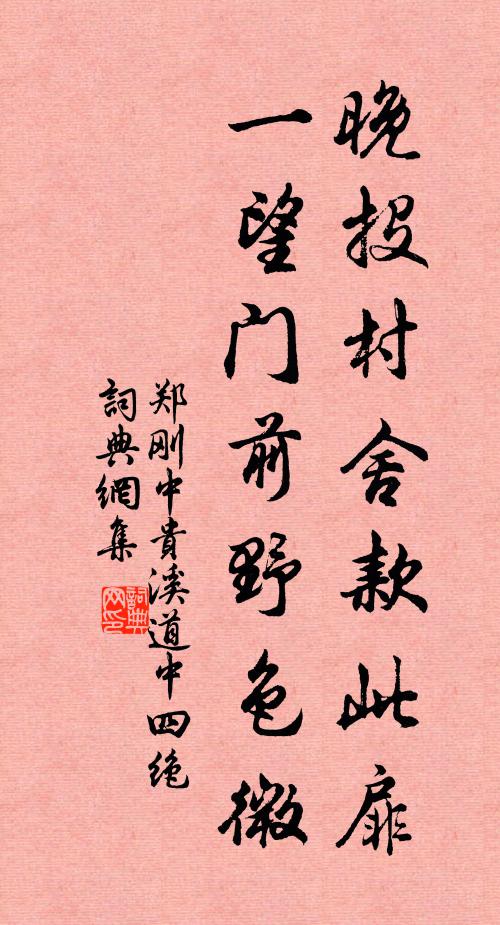 晚投村舍款此扉
一望门前野色微
郑刚中貴溪道中四绝
詞典網集
詞典网印